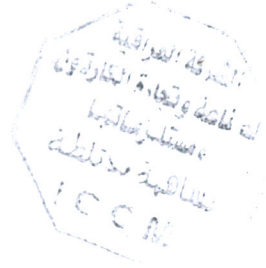 الشركة العراقية
لصناعة وتجارة الكارتون
ومستلزماتها
مساهمة مختلطة
I C C M